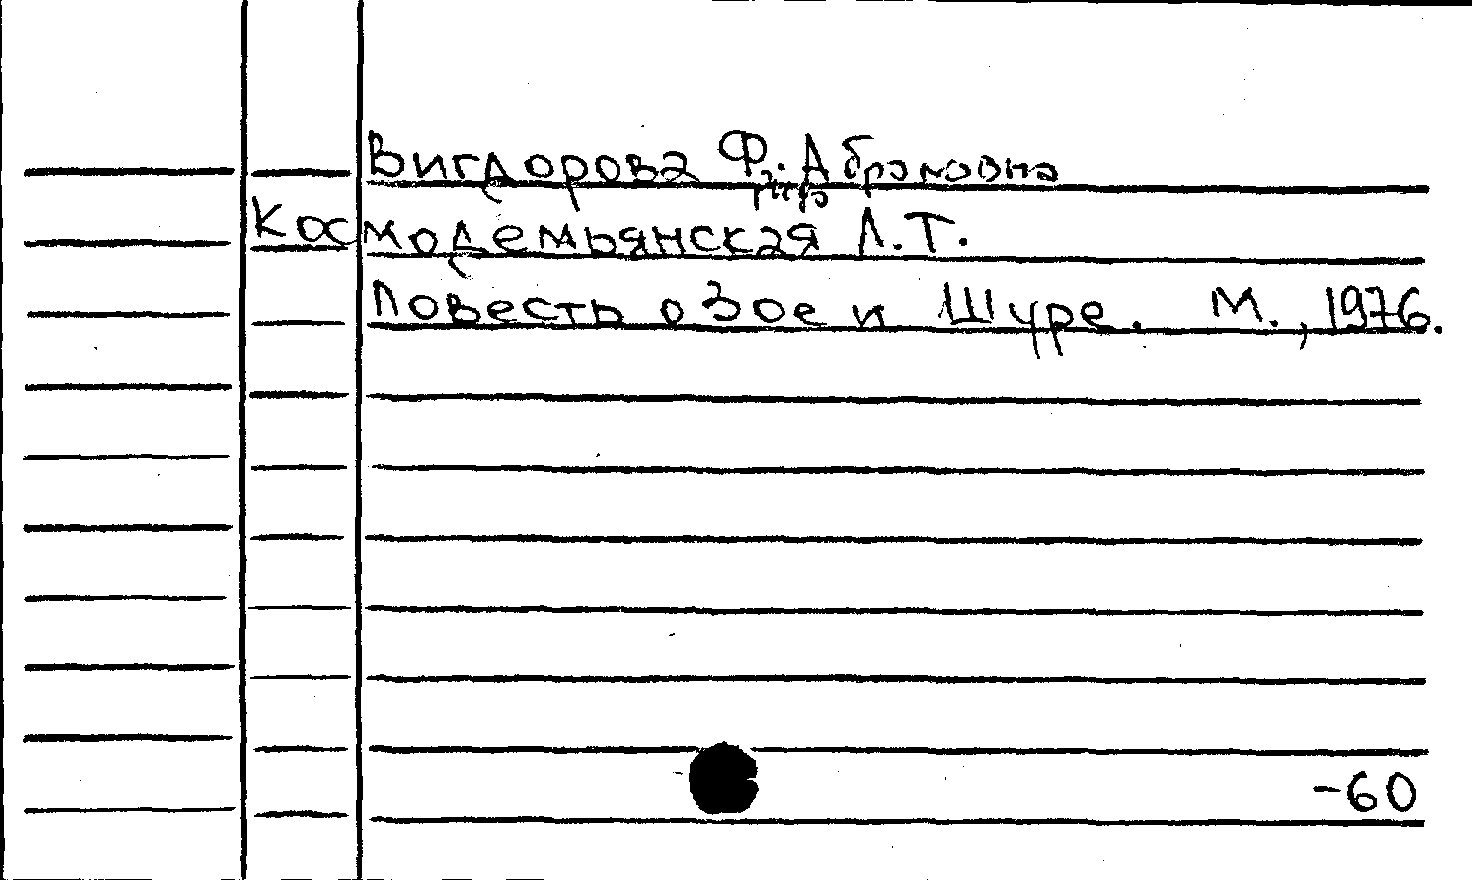 Вигдорова Ф. Абрамовна
Космодемьянская Л.Т.
Повесть о Зое и Шуре. М., 1976.
-60